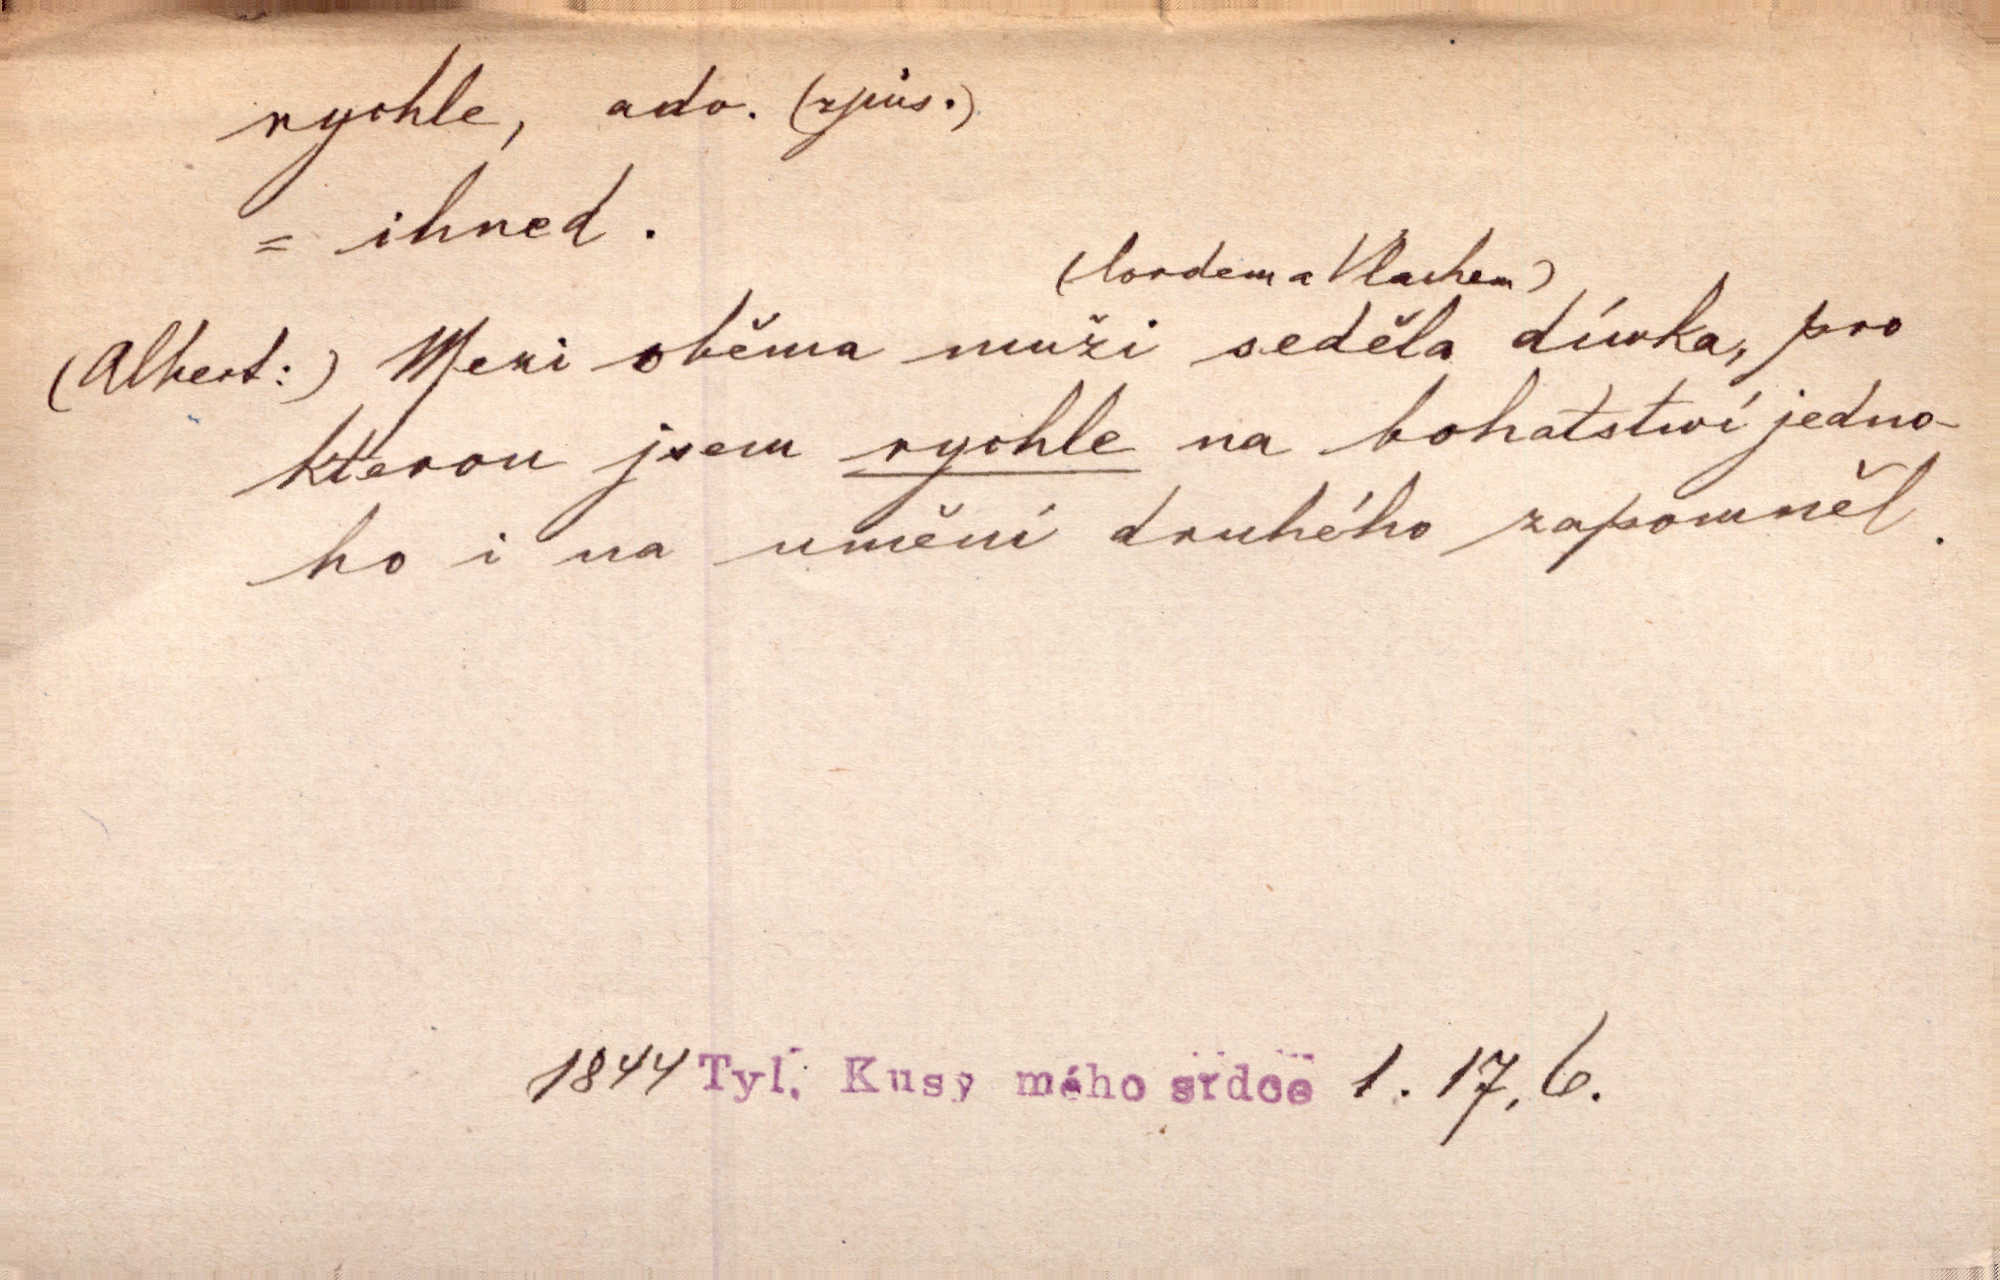 rychle, adv. (způs.)
= ihned.
(lordem a Vlachem)
(Albert:) Mezi oběma muži seděla dívka, pro
kterou jsem rychle na bohatství jedno-
ho i na umění druhého zapomněl.
1844 Tyl, Kusy mého srdce 1. 17, 6.